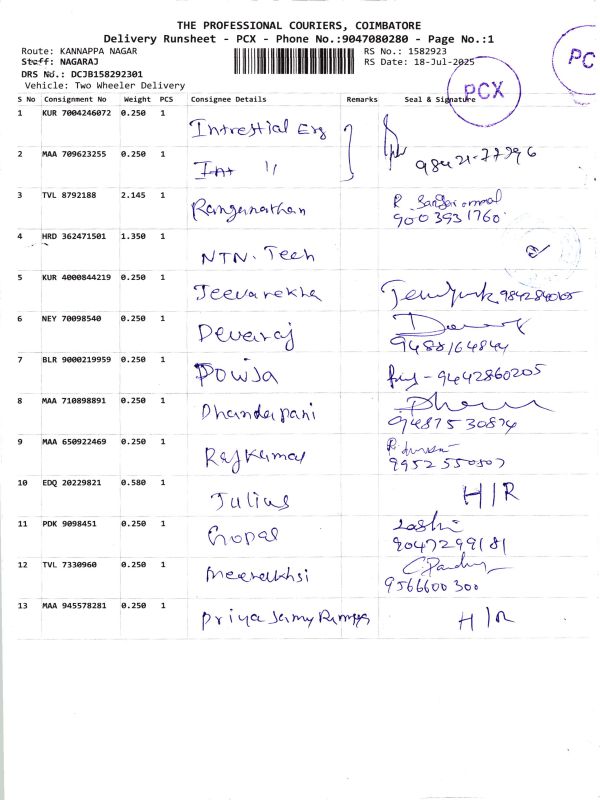 THE PROFESSIONAL COURIERS, COIMBATORE
Delivery Runsheet - PCX - Phone No.:9047080280 - Page No.:1
Route: KANNAPPA NAGAR
RS No.: 1582923
Staff: NAGARAJ
RS Date: 18-Jul-2025
DRS No.: DCJB158292301
Vehicle: Two Wheeler Delivery
PCX
PC
S No Consignment No Weight PCS Consignee Details Remarks Seal & Signature
1 KUR 7004246072 0.250 1
2 MAA 709623255 0.250 1 Int 〃
3 TVL 8792188 2.145 1 Ranganathan
9003931760
4 HRD 362471501 1.350 1 NTN. Tech
5 KUR 4000844219 0.250 1 Jeevarekha
6 NEY 70098540 0.250 1 Devaraj
9488164844
7 BLR 9000219959 0.250 1 Powja - 9442860205
8 MAA 710898891 0.250 1 Dhandapani
9487530874
9 MAA 650922469 0.250 1 Rajkumar
9952550507
10 EDQ 20229821 0.580 1 Julius H/R
11 PDK 9098451 0.250 1 Gopal
9047299181
12 TVL 7330960 0.250 1 meenakhsi C. Pandy
9566600300
13 MAA 945578281 0.250 1 Priya H/R